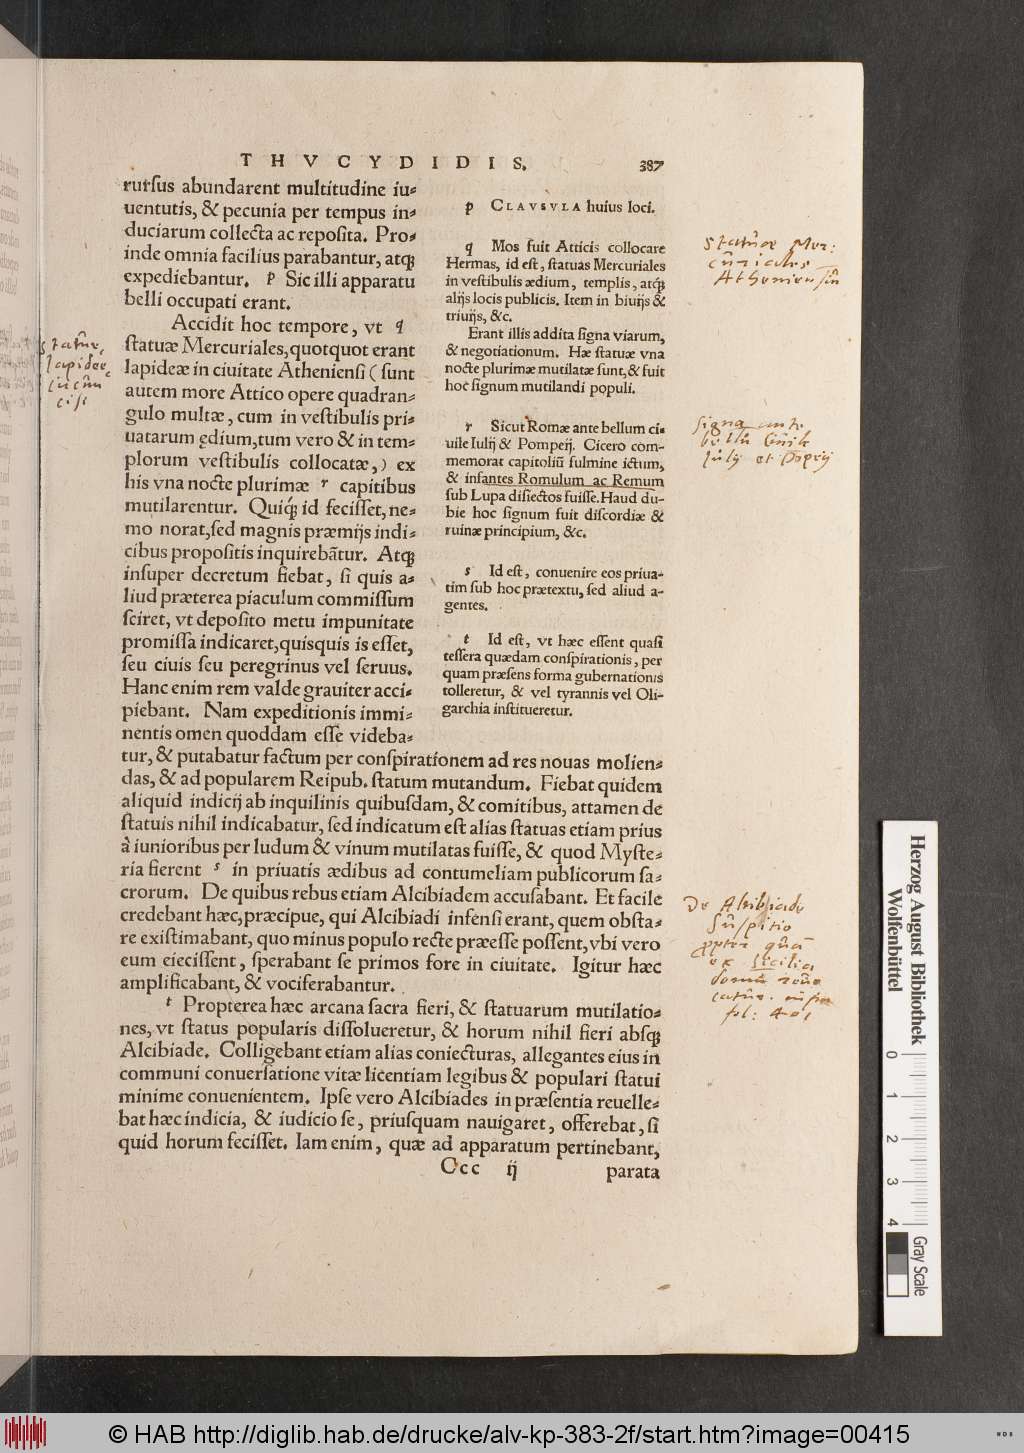 THVCYDIDIS.
387
rurſus abundarent multitudine iu⸗
uentutis, & pecunia per tempus in⸗
duciarum collecta ac repoſita. Pro⸗
inde omnia facilius parabantur, atq;
expediebantur. p Sic illi apparatu
belli occupati erant.
Accidit hoc tempore, vt q
ſtatuæ Mercuriales, quotquot erant
lapideæ in ciuitate Athenienſi (ſunt
autem more Attico opere quadran⸗
gulo multæ, cum in veſtibulis pri⸗
uatarum ędium, tum vero & in tem⸗
plorum veſtibulis collocatæ,) ex
his vna nocte plurimæ r capitibus
mutilarentur. Quiq; id feciſſet, ne⸗
mo norat, ſed magnis præmijs indi⸗
cibus propoſitis inquirebãtur. Atq;
inſuper decretum fiebat, ſi quis a⸗
liud præterea piaculum commiſſum
ſciret, vt depoſito metu impunitate
promiſſa indicaret, quisquis is eſſet,
ſeu ciuis ſeu peregrinus vel ſeruus.
Hanc enim rem valde grauiter acci⸗
piebant. Nam expeditionis immi⸗
nentis omen quoddam eſſe videba⸗
tur, & putabatur factum per conſpirationem ad res nouas molien⸗
das, & ad popularem Reipub. ſtatum mutandum. Fiebat quidem
aliquid indicij ab inquilinis quibuſdam, & comitibus, attamen de
ſtatuis nihil indicabatur, ſed indicatum eſt alias ſtatuas etiam prius
à iunioribus per ludum & vinum mutilatas fuiſſe, & quod Myſte⸗
ria fierent s in priuatis ædibus ad contumeliam publicorum ſa⸗
crorum. De quibus rebus etiam Alcibiadem accuſabant. Et facile
credebant hæc, præcipue, qui Alcibiadi infenſi erant, quem obſta⸗
re exiſtimabant, quo minus populo recte præeſſe poſſent, vbi vero
eum eieciſſent, ſperabant ſe primos fore in ciuitate. Igitur hæc
amplificabant, & vociferabantur.
t Propterea hæc arcana ſacra fieri, & ſtatuarum mutilatio⸗
nes, vt ſtatus popularis diſſolueretur, & horum nihil fieri abſq;
Alcibiade. Colligebant etiam alias coniecturas, allegantes eius in
communi conuerſatione vitæ licentiam legibus & populari ſtatui
minime conuenientem. Ipſe vero Alcibiades in præſentia reuelle⸗
bat hæc indicia, & iudicio ſe, priuſquam nauigaret, offerebat, ſi
quid horum feciſſet. Iam enim, quæ ad apparatum pertinebant,
Ccc ij
parata
p CLAVSVLA huius loci.
q Mos fuit Atticis collocare
Hermas, id eſt, ſtatuas Mercuriales
in veſtibulis ædium, templis, atq;
alijs locis publicis. Item in biuijs &
triuijs, &c.
Erant illis addita ſigna viarum,
& negotiationum. Hæ ſtatuæ vna
nocte plurimæ mutilatæ ſunt, & fuit
hoc ſignum mutilandi populi.
r Sicut Romæ ante bellum ci⸗
uile Iulij & Pompeij. Cicero com⸗
memorat capitoliũ fulmine ictum,
& infantes Romulum ac Remum
ſub Lupa diſiectos fuiſſe. Haud du⸗
bie hoc ſignum fuit diſcordiæ &
ruinæ principium, &c.
s Id eſt, conuenire eos priua⸗
tim ſub hoc prætextu, ſed aliud a⸗
gentes.
t Id eſt, vt hæc eſſent quaſi
teſſera quædam conſpirationis, per
quam præſens forma gubernationis
tolleretur, & vel tyrannis vel Oli⸗
garchia inſtitueretur.
statuæ
lapideæ
circum
cisæ
Statuæ Mer:
curiales
Atheniensiũ
Signa ante
bellũ Ciuile
Iulij et Pōpeij
De Alcibiade
suspitio
propter quã
ex Sicilia
domũ reuo
catur. infra
fol: 401
Herzog August Bibliothek
Wolfenbüttel
0
1
2
3
4
Gray Scale
© HAB http://diglib.hab.de/drucke/alv-kp-383-2f/start.htm?image=00415